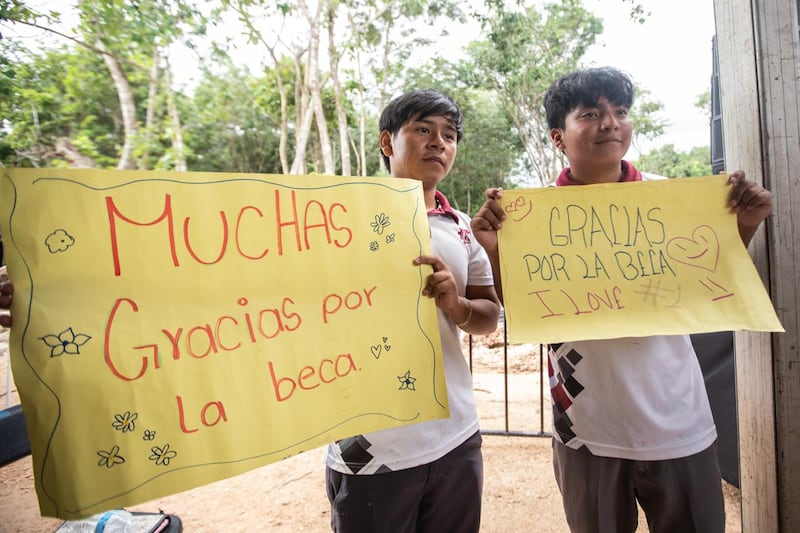 MUCHAS
Gracias por
la beca.
GRACIAS
POR LA BECA
I LOVE